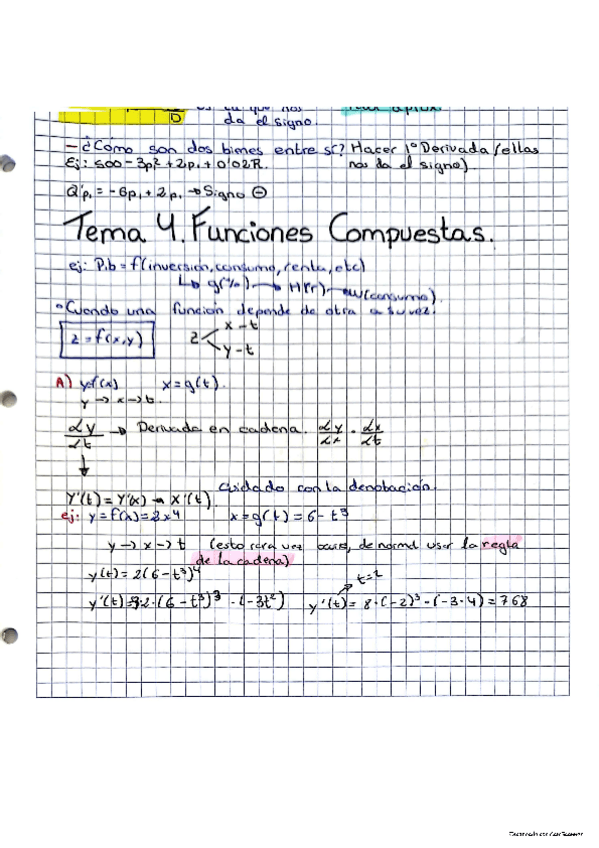 es la que nos
da el signo.
D
- ¿Cómo son dos bienes entre sí? Hacer 1º Derivada (ellas
Ej: 500 - 3p² + 2p₁ + 0'02R. nos da el signo).
Q'p₁ = -6p₁ + 2p₁ → Signo ⊖
Tema 4. Funciones Compuestas.
ej: P.b = f(inversión, consumo, renta, etc)
↳ g(%) → H(r) → w(consumo).
• Cuando una función depende de otra a su vez.
z = f(x,y) z < x - t
y - t
A) y=f(x) x = g(t).
y → x → t.
dy/dt → Derivada en cadena. dy/dx · dx/dt
↓
cuidado con la denotación.
Y'(t) = Y'(x) · X'(t)
ej: y = f(x) = 2x⁴ x = g(t) = 6 - t³
y → x → t (esto rara vez ocurre, de normal usar la regla
de la cadena)
y(t) = 2(6 - t³)⁴
t=2
y'(t) = 8·(6 - t³)³ · (-3t²) y'(t) = 8·(-2)³ · (-3·4) = 768